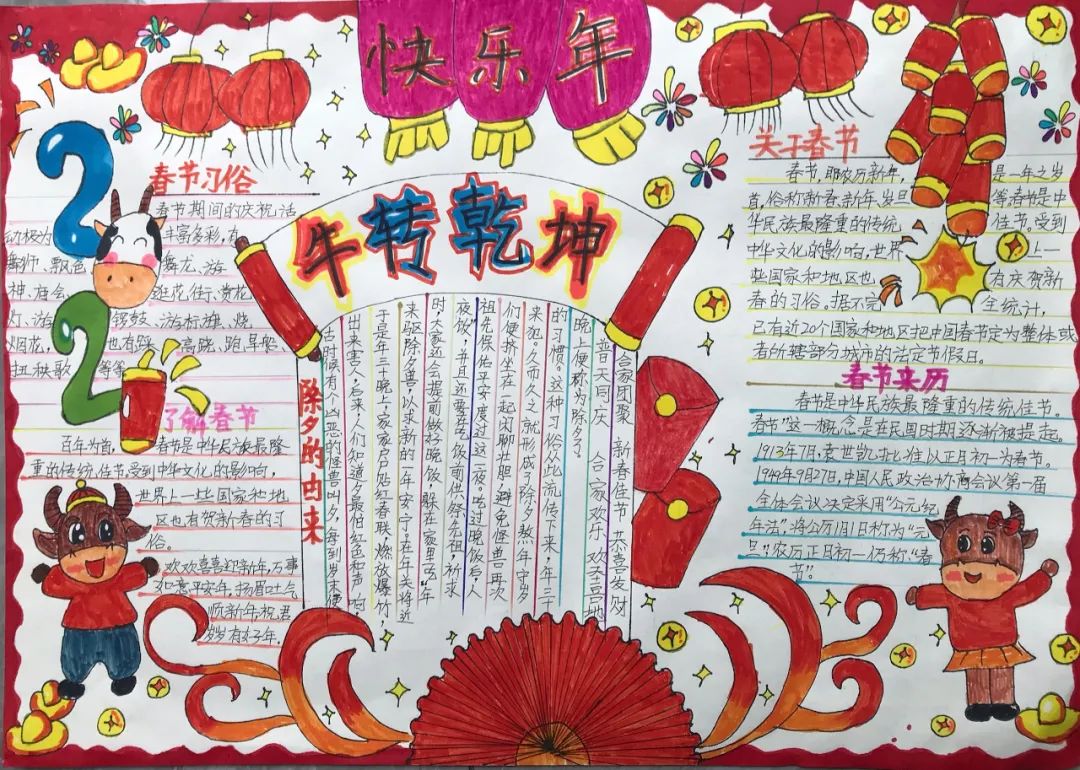 快乐年
牛转乾坤
2
2
春节习俗
春节期间的庆祝活
动极为丰富多彩,有
舞狮、飘色、舞龙、游
神、庙会、逛花街、赏花
灯、游锣鼓、游标旗、烧
烟花,也有踩高跷、跑旱船、
扭秧歌等等
了解春节
百年为首,春节是中华民族最隆
重的传统佳节受到中华文化的影响,
世界上一些国家和地
区也有贺新春的习
俗。
欢欢喜喜迎新年,万事
如意平安年,扬眉吐气
顺新年祝君
岁岁有好年.
合家团聚 新春佳节 恭喜发财
普天同庆 合家欢乐 欢天喜地
晚上便称为除夕了。
的习惯。这种习俗从此流传下来,年三十
来犯。久而久之就形成了除夕熬年守岁
们便挤坐在一起闲聊壮胆,避免怪兽再次
祖先保佑平安度过这一夜。吃过晚饭后,人
夜饭",并且还要在吃饭前供祭先祖,祈求
时,大家还会提前做好晚饭,躲在家里吃"年
来驱除夕兽,以求新的一年安宁。在年关将近
于是年三十晚上家家户户贴红春联,燃放爆竹,
出来害人,后来人们知道夕最怕红色和声响,
古时候有个凶恶的怪兽叫夕,每到岁末便
除夕的由来
关于春节
春节,即农历新年,是一年之岁
首,俗称新春、新年、岁旦等春节是中
华民族最隆重的传统佳节。受到
中华文化的影响,世界上一
些国家和地区也有庆贺新
春的习俗。据不完全统计,
已有近20个国家和地区把中国春节定为整体或
者所辖部分城市的法定节假日。
春节来历
春节是中华民族最隆重的传统佳节。
春节"这一概念是在民国时期逐渐被提起。
1913年7月,袁世凯批准以正月初一为春节。
1949年9月27日,中国人民政治协商会议第一届
全体会议决定采用"公元纪
年法",将公历1月1日称为"元
旦",农历正月初一仍称"春
节"。